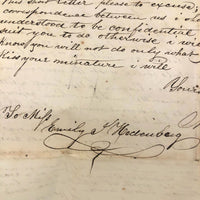 This short letter please to excuse,
correspondence between us i
understood to be confidential
suit you to do otherwise i
know, you will not do only what
kiss your miniature i will
Your
To Miss
Emily